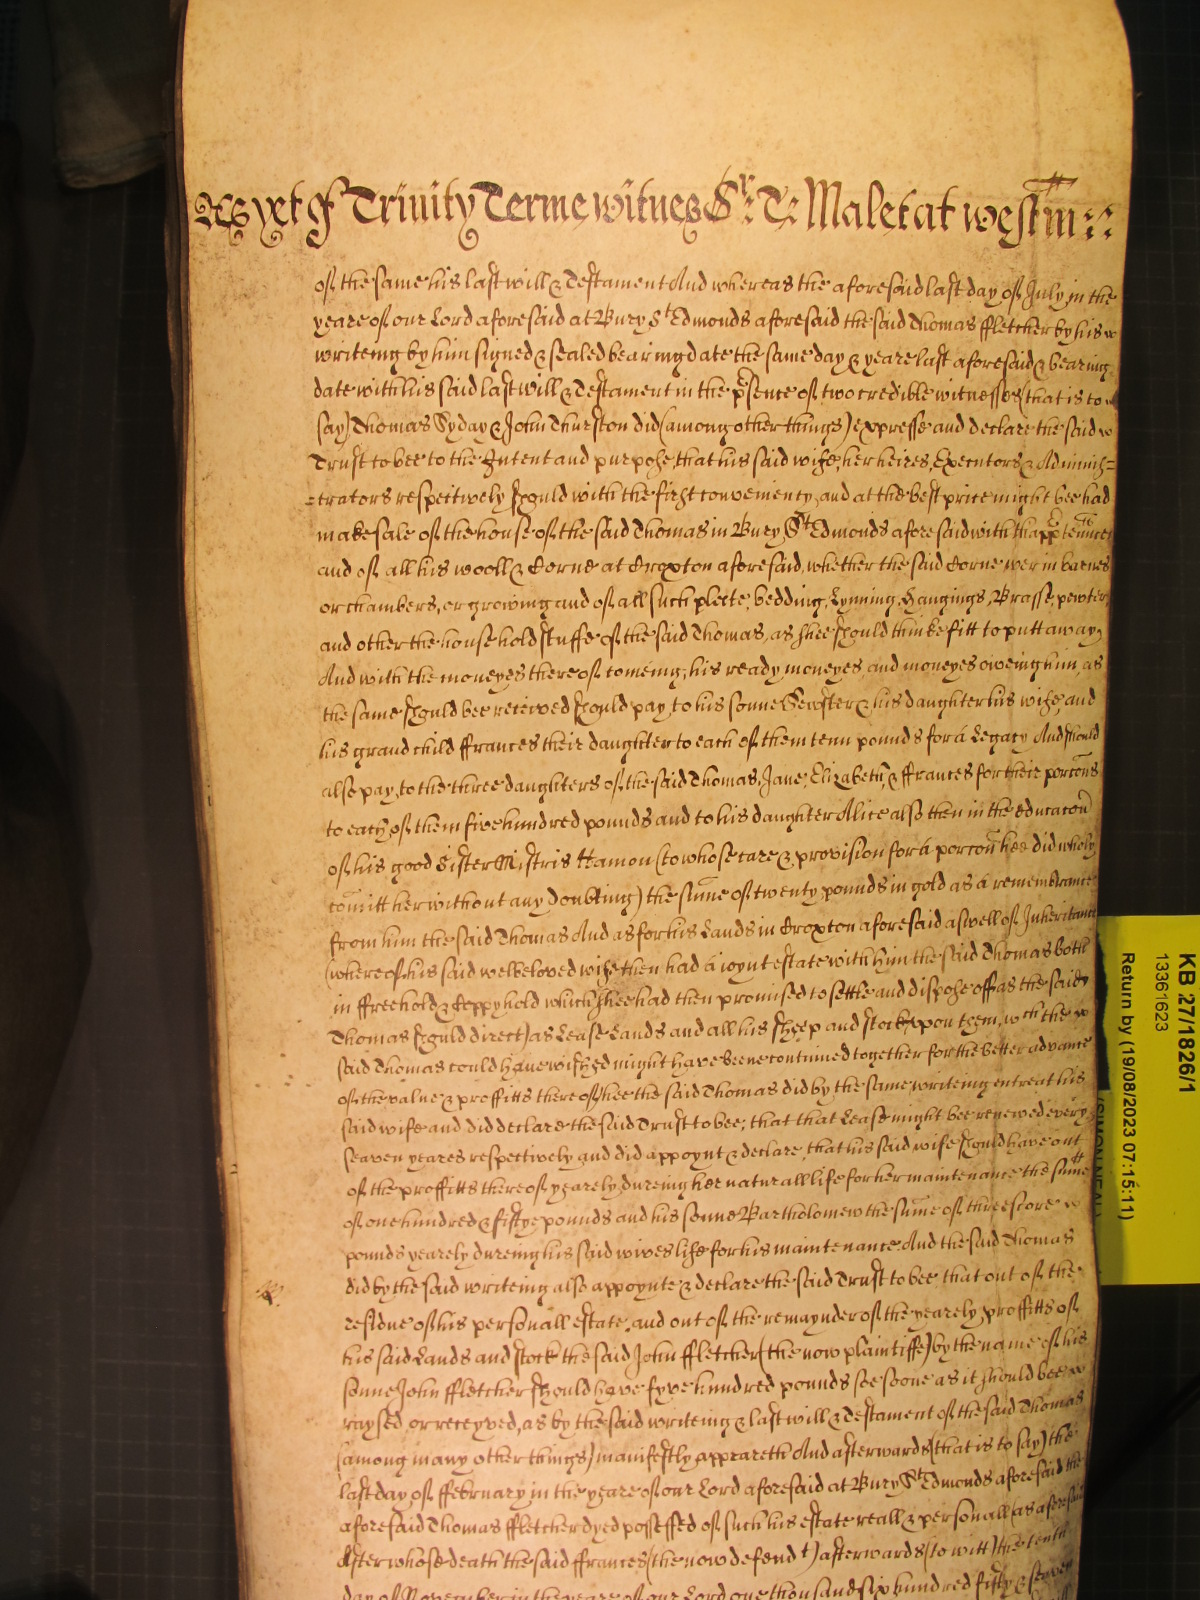 As yet of Trinity Terme witnes Sr. T: Malet at westm̄ ::
of the same his last will & Testament And whereas the aforesaid last day of July in the
yeare of our Lord aforesaid at Bury St Edmonds aforesaid the said Thomas ffletcher by his
writeing by him signed & sealed bearing date the same day & yeare last aforesaid & bearing
date with his said last will & Testament in the presence of two credible witnesses (that is to
say) Thomas Syday & John Thurston did (among other things) expresse and declare the said
Trust to bee to the Intent and purpose, that his said wife, her heires, Executors & Adminis=
=trators respectively should with the first conveniency, and at the best price might bee had
make sale of the house of the said Thomas in Bury St Edmonds aforesaid with thapptennces
and of all his wooll & Corne at Croxton aforesaid, whether the said Corne wer in barnes
or chambers, or growing and of all such plate, bedding, Lynning, Hangings, Brasse, pewter,
and other the household stuffe of the said Thomas, as shee should thinke fitt to putt away,
And with the moneyes thereof comeing, his ready moneyes, and moneyes oweing him, as
the same should bee received should pay, to his sonne Sewster & his daughter his wife, and
his grand child ffrances their daughter to each of them tenn pounds for a Legacy And should
also pay, to the three daughters of the said Thomas, Jane, Elizabeth, & ffrances for their porcons
to each of them five hundred pounds and to his daughter Alice also then in the educacon
of his good Sister Mistris Hamon (to whose care & provision for a porcon hee did wholy
comitt her without any doubting) the sume of twenty pounds in gold as a remembrance
from him the said Thomas And as for his Lands in Croxton aforesaid aswell of Inheritance
(whereof his said welbeloved wife then had a ioynt estate with him the said Thomas both
in ffreehold & Coppyhold which shee had then promised to settle and dispose off as the said
Thomas should direct) as Lease Lands and all his sheep and stock upon them, wch the
said Thomas could have wished might have beene continued together for the better advance
of the value & proffitts thereof hee the said Thomas did by the same writeing entreat his
said wife and did declare the said Trust to bee, that that Lease might bee renewed every
seaven yeares respectively and did appoynt & declare, that his said wife should have out
of the proffitts thereof yearely dureing her naturall life for her maintenance the sume
of one hundred & fiftye pounds and his sonne Bartholomew the sume of threescore
pounds yearely dureing his said wives life for his maintenance And the said Thomas
did by the said writeing also appoynte & declare the said Trust to bee that out of the
residue of his personall estate, and out of the remaynder of the yearely proffitts of
his said Lands and stock the said John ffletcher (the now plaintiffe) by the name of his
sonne John ffletcher should have fyve hundred pounds soe soone as it should bee
raysed, or receyved, as by the said writeing & last will & Testament of the said Thomas
(among many other things) manifestly appeareth And afterwards (that is to say) the
last day of ffebruary in the yeare of our Lord aforesaid at Bury St Edmonds aforesaid the
aforesaid Thomas ffletcher dyed possessed of such his estate reall & personall (as aforesaid
After whose death the said ffrances (the now defendt) afterwards (to witt) the tenth
day of November in the yeare of our Lord one thousand six hundred fifty & seven
KB 27/1826/1
13361623
Return by (19/08/2023 07:15:11)